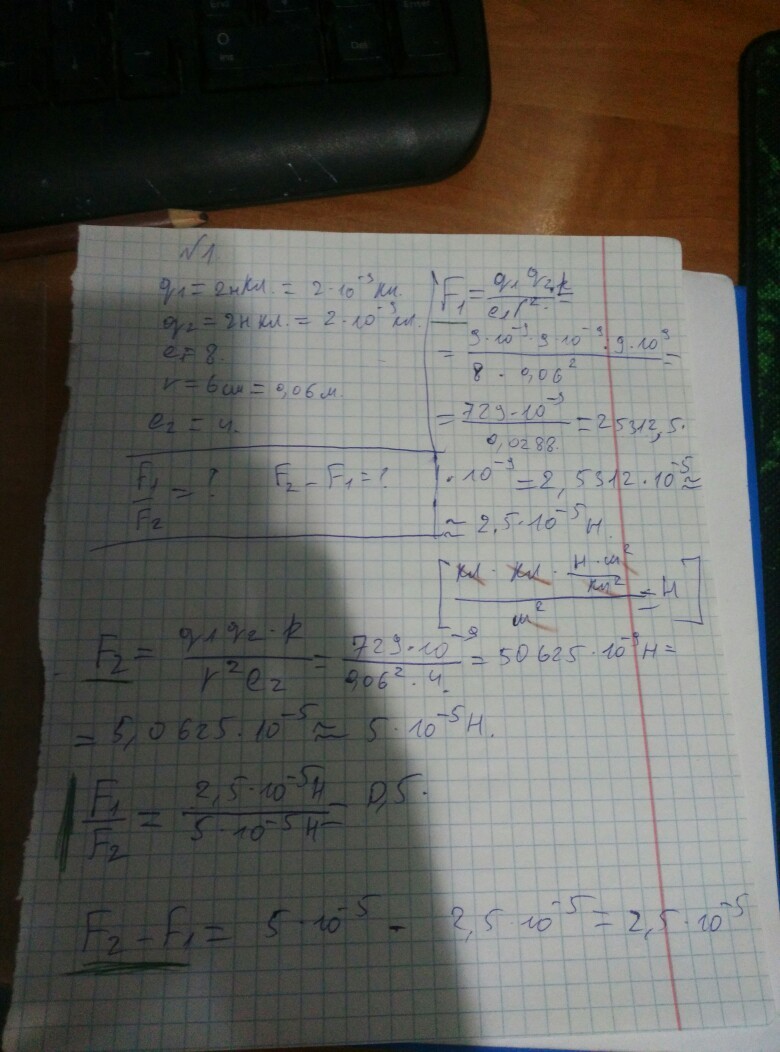 №1
q1 = 2нкл. = 2·10⁻⁹кл.
q2 = 2нкл. = 2·10⁻⁹кл.
e1 = 8.
r = 6см = 0,06м.
e2 = 4.
F1/F2 = ? F2 - F1 = ?
F1 = q1 q2 k / e1 r² =
= 9·10⁻⁹·9·10⁻⁹·9·10⁹ / 8·0,06² =
= 729·10⁻⁹ / 0,0288 = 25312,5·
·10⁻⁹ = 2,5312·10⁻⁵ ≈
≈ 2,5·10⁻⁵ Н.
[кл·кл·Н·м²/кл² / м² = Н]
F2 = q1 q2·k / r² e2 = 729·10⁻⁹ / 0,06²·4. = 50625·10⁻⁹ Н =
= 5,0625·10⁻⁵ ≈ 5·10⁻⁵ Н.
F1/F2 = 2,5·10⁻⁵ Н / 5·10⁻⁵ Н = 0,5.
F2 - F1 = 5·10⁻⁵ - 2,5·10⁻⁵ = 2,5·10⁻⁵